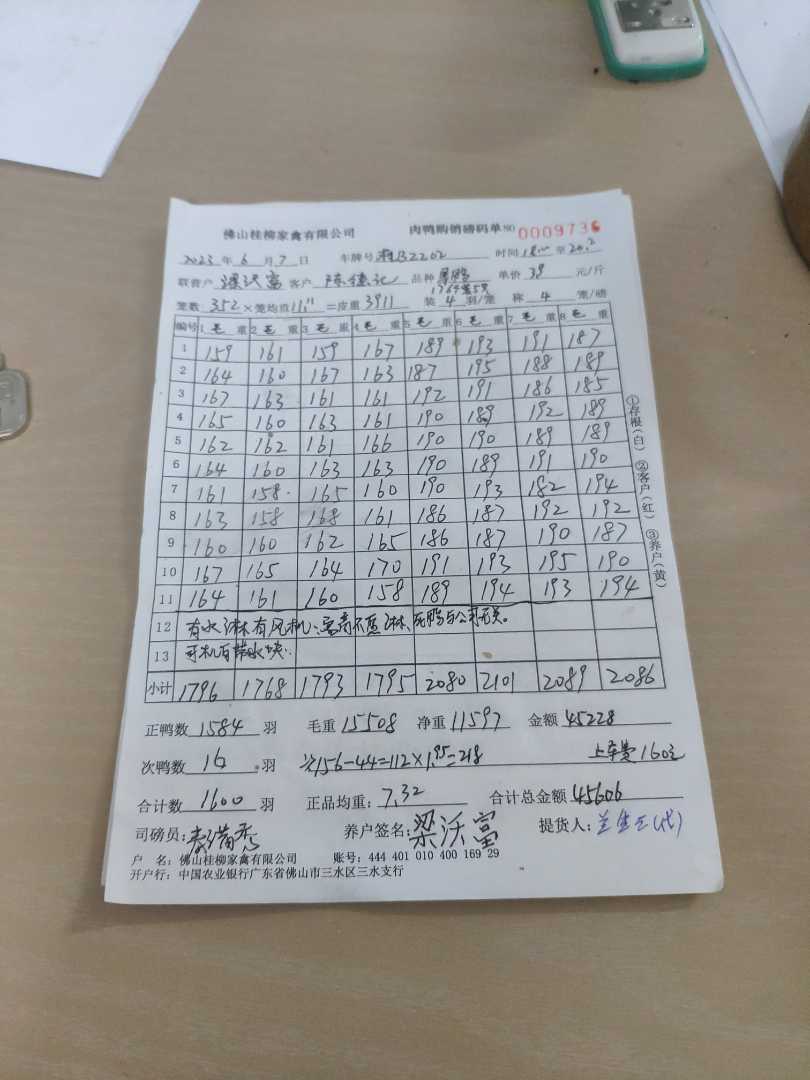 佛山桂柳家禽有限公司 肉鸭购销磅码单 NO 0009736
2023 年 6 月 7 日 车牌号 湘B2202 时间 18:00 至 20:2
联营户 梁沃富 客户 陈德记 品种 单价 39 元/斤
笼数 352 × 笼均重 11.11 = 皮重 3911 装 4 羽/笼 称 4 笼/磅
编号 1 毛 重 2 毛 重 3 毛 重 4 毛 重 5 毛 重 6 毛 重 7 毛 重 8 毛 重
1 159 161 159 167 189 193 191 187
2 164 160 167 163 187 195 188 189
3 167 163 161 161 192 191 186 185
4 165 160 163 161 190 189 192 189
5 162 162 161 166 190 190 189 189
6 164 160 163 163 190 189 191 190
7 161 158 165 160 190 193 182 194
8 163 158 168 161 186 187 192 192
9 160 160 162 165 186 187 190 187
10 167 165 164 170 191 193 195 190
11 164 161 160 158 189 194 193 194
12 有水淋有风机、客商不愿淋、死鸭与公司无关。
13 司机有带冰块.
小计 1796 1768 1793 1795 2080 2101 2089 2086
正鸭数 1584 羽 毛重 15508 净重 11597 金额 45228
次鸭数 16 羽 次156-44=112×1.95=218 上车费160元
合计数 1600 羽 正品均重: 7.32 合计总金额 45606
司磅员: 养户签名: 梁沃富 提货人:
户 名: 佛山桂柳家禽有限公司 账号: 444 401 010 400 169 29
开户行: 中国农业银行广东省佛山市三水区三水支行
①存根(白) ②客户(红) ③养户(黄)